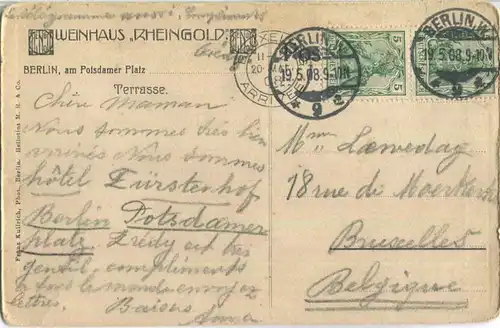 WEINHAUS „RHEINGOLD“
BERLIN, am Potsdamer Platz
Terrasse.
Chère Maman
Nous sommes très bien
arrivés Nous sommes
hôtel Fürstenhof
Berlin Potsdamer
platz. Frédy est très
gentil, compliments
à tout le monde envoyez
lettres.
Baisers
Franz Kullrich, Phot., Berlin.
BERLIN, W.
19.5.08.9-10N.
* 9 a
BERLIN, W.
19.5.08.9-10N.
* 9 a
5
5
Mme
18 rue de
Bruxelles
Belgique